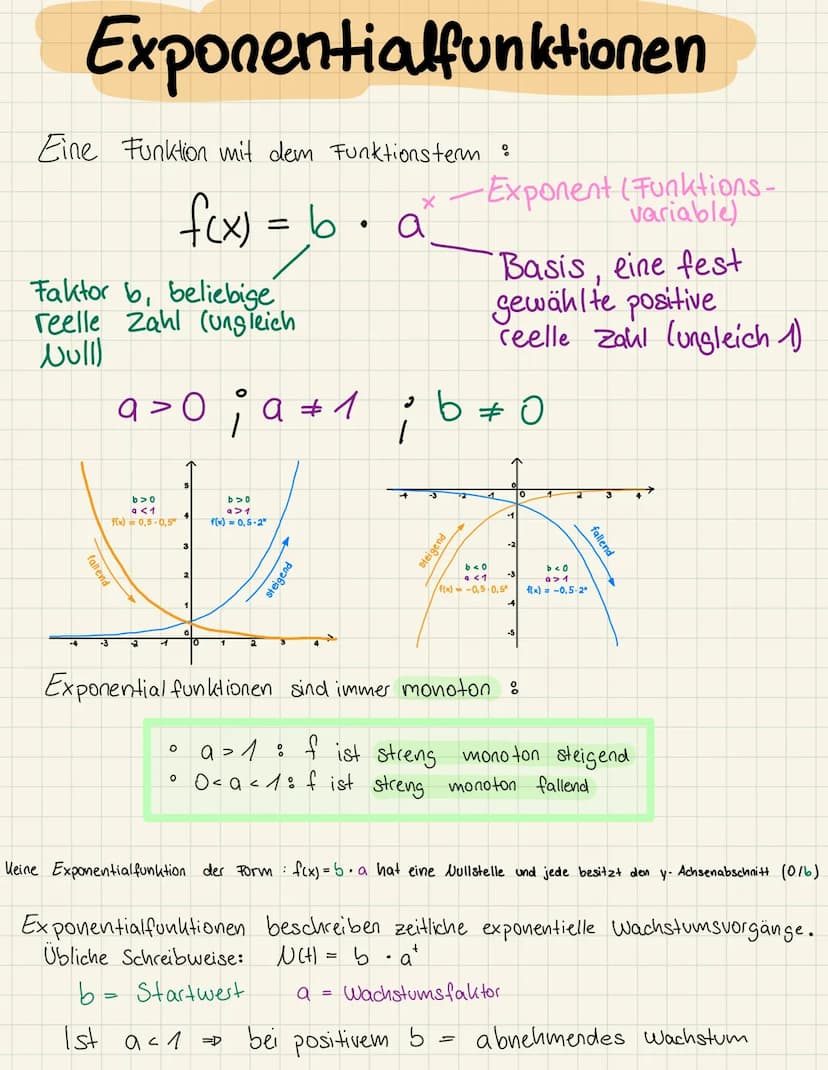 Exponentialfunktionen
Eine Funktion mit dem Funktionsterm :
f(x) = b · aˣ
Exponent (Funktions-
variable)
Faktor b, beliebige
reelle Zahl (ungleich
Null)
Basis, eine fest
gewählte positive
reelle Zahl (ungleich 1)
a > 0 ; a ≠ 1 ; b ≠ 0
b>0
a<1
f(x) = 0,5·0,5ˣ
b>0
a>1
f(x) = 0,5·2ˣ
fallend
steigend
5
4
3
2
1
0
-4 -3 -2 -1 0 1 2 3 4
-4 -3 -2 -1 0 1 2 3 4
0
-1
-2
-3
-4
-5
steigend
fallend
b<0
a<1
f(x) = -0,5·0,5ˣ
b<0
a>1
f(x) = -0,5·2ˣ
Exponentialfunktionen sind immer monoton :
° a > 1 : f ist streng monoton steigend
° 0 < a < 1 : f ist streng monoton fallend
Keine Exponentialfunktion der Form : f(x) = b · a hat eine Nullstelle und jede besitzt den y-Achsenabschnitt (0/b)
Exponentialfunktionen beschreiben zeitliche exponentielle Wachstumsvorgänge.
Übliche Schreibweise: N(t) = b · aᵗ
b = Startwert a = Wachstumsfaktor
Ist a < 1 ⇒ bei positivem b = abnehmendes Wachstum